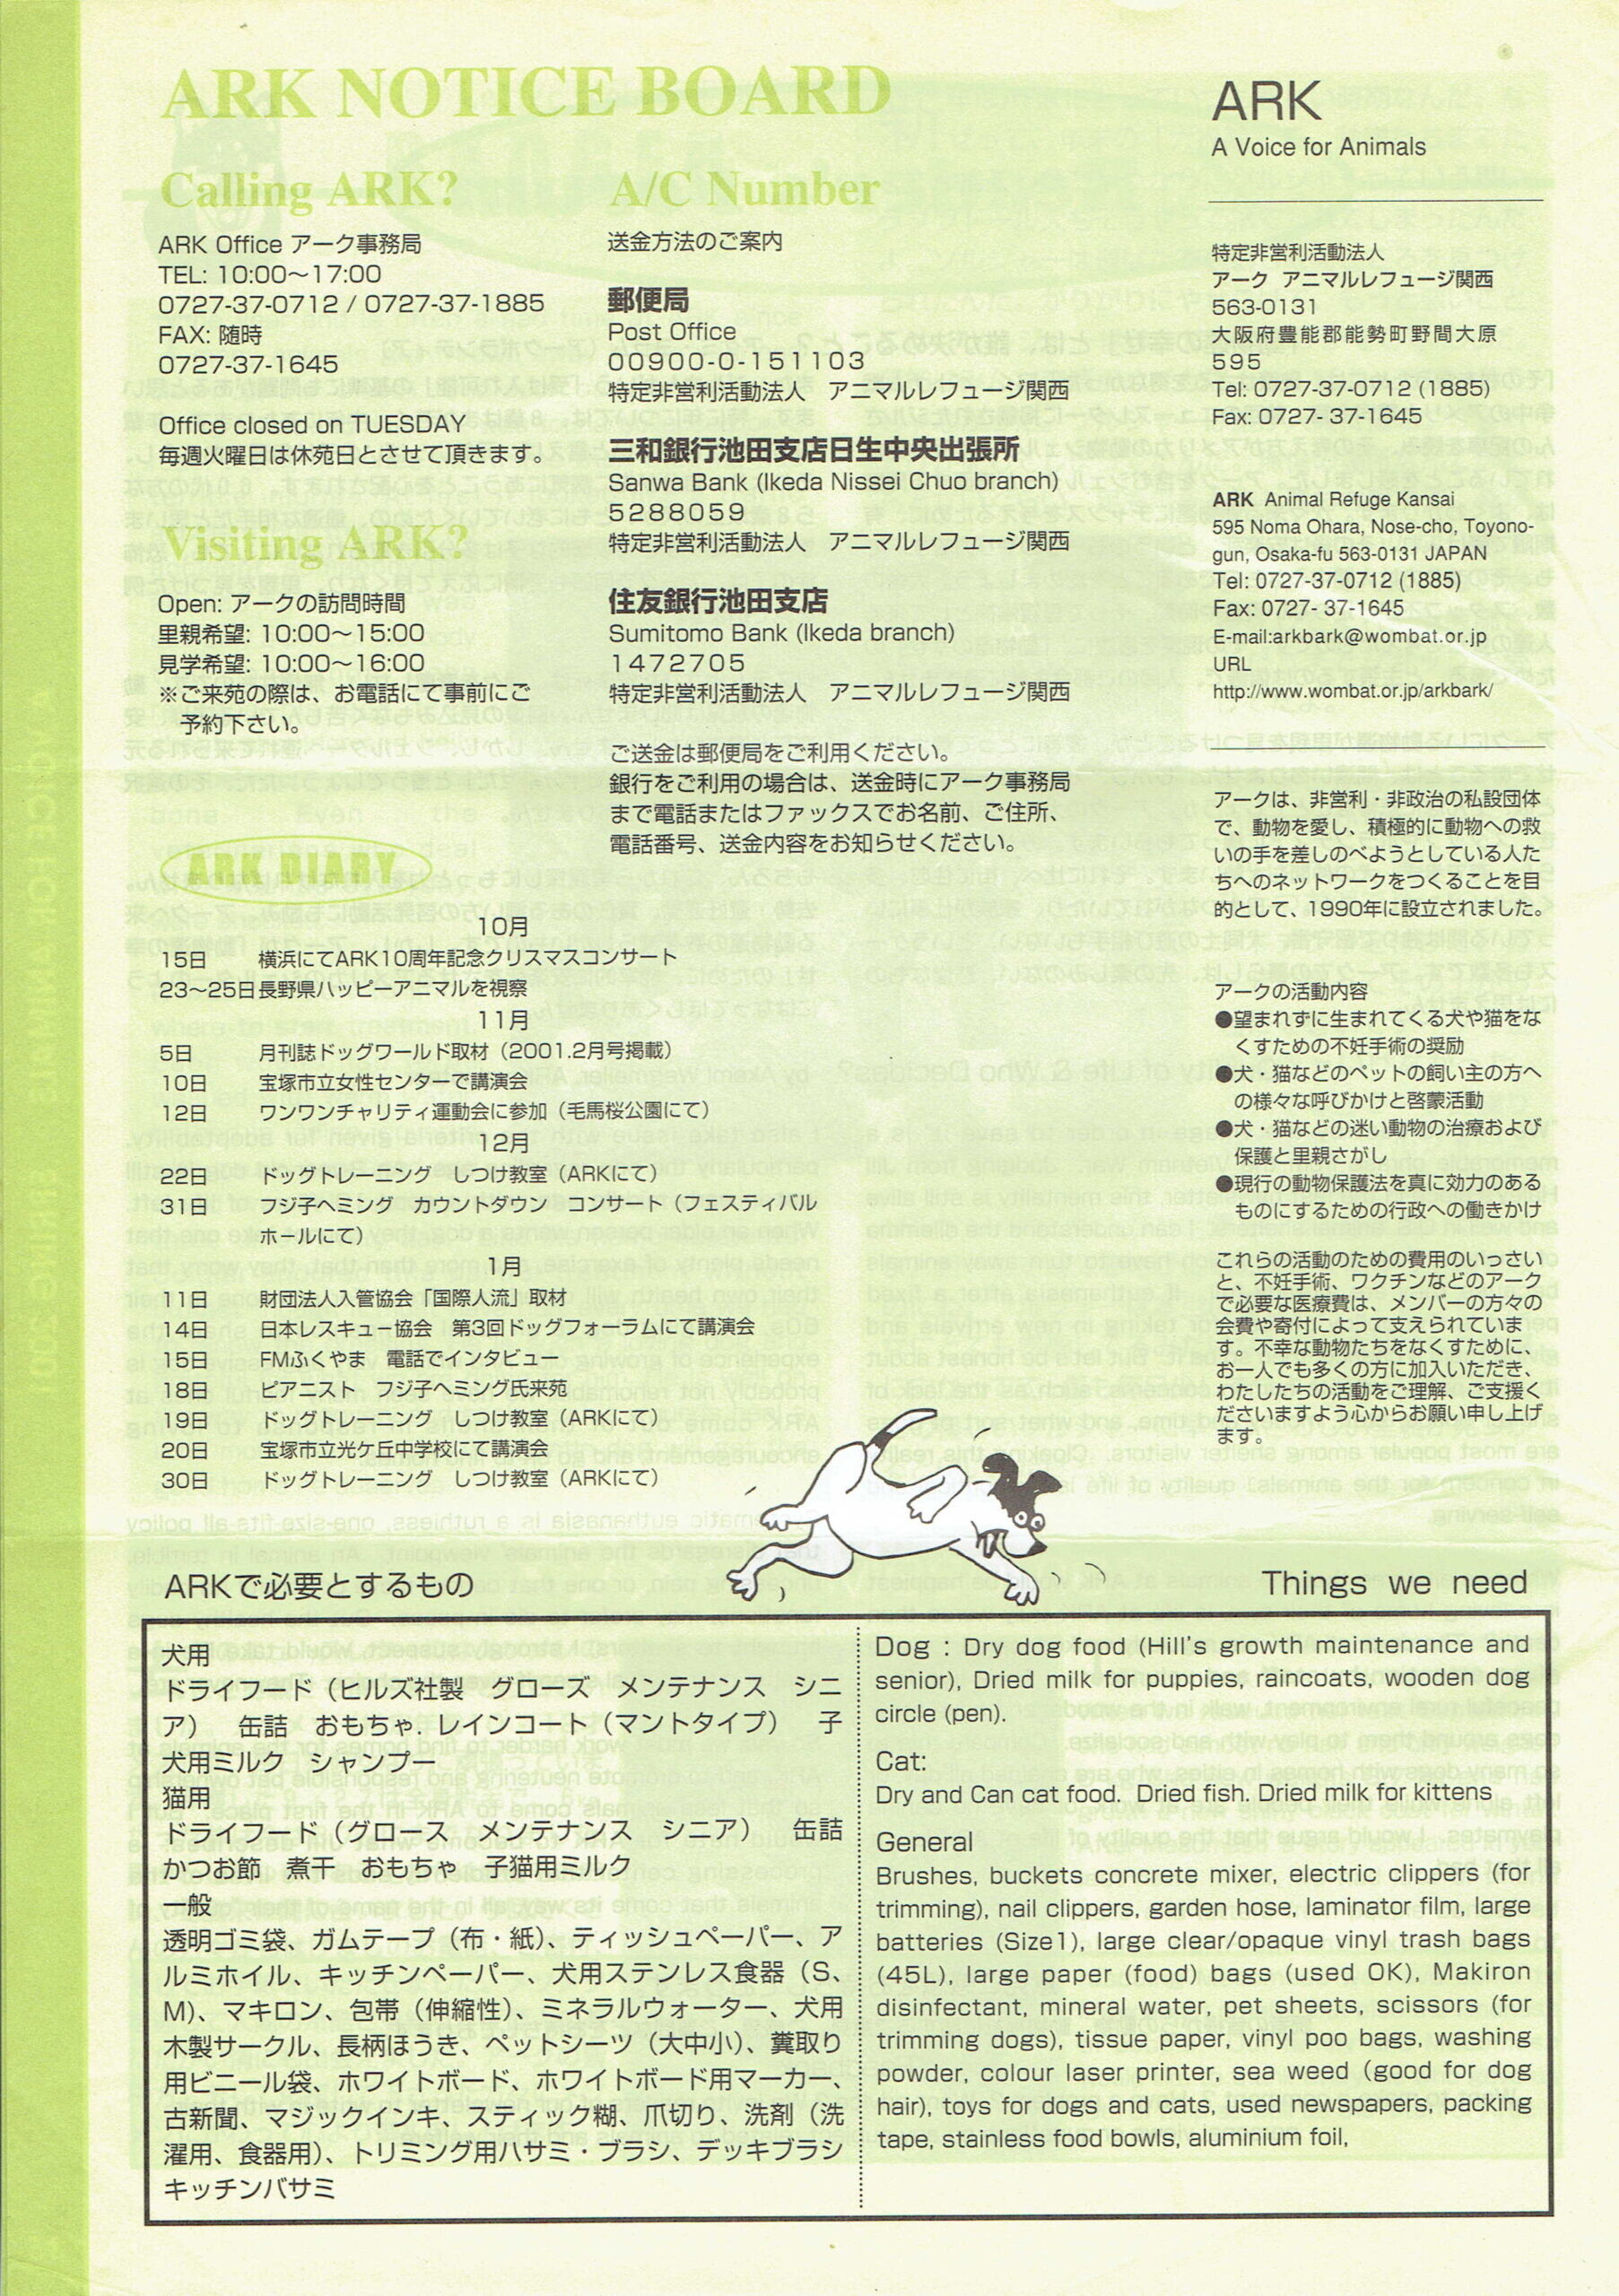 ARK NOTICE BOARD
Calling ARK?
ARK Office アーク事務局
TEL: 10:00〜17:00
0727-37-0712 / 0727-37-1885
FAX: 随時
0727-37-1645
Office closed on TUESDAY
毎週火曜日は休苑日とさせて頂きます。
Visiting ARK?
Open: アークの訪問時間
里親希望: 10:00〜15:00
見学希望: 10:00〜16:00
※ご来苑の際は、お電話にて事前にご
予約下さい。
A/C Number
送金方法のご案内
郵便局
Post Office
00900-0-151103
特定非営利活動法人　アニマルレフュージ関西
三和銀行池田支店日生中央出張所
Sanwa Bank (Ikeda Nissei Chuo branch)
5288059
特定非営利活動法人　アニマルレフュージ関西
住友銀行池田支店
Sumitomo Bank (Ikeda branch)
1472705
特定非営利活動法人　アニマルレフュージ関西
ご送金は郵便局をご利用ください。
銀行をご利用の場合は、送金時にアーク事務局
まで電話またはファックスでお名前、ご住所、
電話番号、送金内容をお知らせください。
ARK DIARY
10月
15日　横浜にてARK10周年記念クリスマスコンサート
23〜25日長野県ハッピーアニマルを視察
11月
5日　月刊誌ドッグワールド取材（2001.2月号掲載）
10日　宝塚市立女性センターで講演会
12日　ワンワンチャリティ運動会に参加（毛馬桜公園にて）
12月
22日　ドッグトレーニング　しつけ教室（ARKにて）
31日　フジ子ヘミング　カウントダウン　コンサート（フェスティバル
ホールにて）
1月
11日　財団法人入管協会「国際人流」取材
14日　日本レスキュー協会　第3回ドッグフォーラムにて講演会
15日　FMふくやま　電話でインタビュー
18日　ピアニスト　フジ子ヘミング氏来苑
19日　ドッグトレーニング　しつけ教室（ARKにて）
20日　宝塚市立光ケ丘中学校にて講演会
30日　ドッグトレーニング　しつけ教室（ARKにて）
ARK
A Voice for Animals
特定非営利活動法人
アーク アニマルレフュージ関西
563-0131
大阪府豊能郡能勢町野間大原
595
Tel: 0727-37-0712 (1885)
Fax: 0727- 37-1645
ARK Animal Refuge Kansai
595 Noma Ohara, Nose-cho, Toyono-
gun, Osaka-fu 563-0131 JAPAN
Tel: 0727-37-0712 (1885)
Fax: 0727- 37-1645
E-mail:arkbark@wombat.or.jp
URL
http://www.wombat.or.jp/arkbark/
アークは、非営利・非政治の私設団体
で、動物を愛し、積極的に動物への救
いの手を差しのべようとしている人た
ちへのネットワークをつくることを目
的として、1990年に設立されました。
アークの活動内容
●望まれずに生まれてくる犬や猫をな
くすための不妊手術の奨励
●犬・猫などのペットの飼い主の方へ
の様々な呼びかけと啓蒙活動
●犬・猫などの迷い動物の治療および
保護と里親さがし
●現行の動物保護法を真に効力のある
ものにするための行政への働きかけ
これらの活動のための費用のいっさい
と、不妊手術、ワクチンなどのアーク
で必要な医療費は、メンバーの方々の
会費や寄付によって支えられていま
す。不幸な動物たちをなくすために、
お一人でも多くの方に加入いただき、
わたしたちの活動をご理解、ご支援く
ださいますよう心からお願い申し上げ
ます。
ARKで必要とするもの
Things we need
犬用
ドライフード（ヒルズ社製　グローズ　メンテナンス　シニ
ア）　缶詰　おもちゃ. レインコート（マントタイプ）　子
犬用ミルク　シャンプー
猫用
ドライフード（グロース　メンテナンス　シニア）　缶詰
かつお節　煮干　おもちゃ　子猫用ミルク
一般
透明ゴミ袋、ガムテープ（布・紙）、ティッシュペーパー、ア
ルミホイル、キッチンペーパー、犬用ステンレス食器（S、
M）、マキロン、包帯（伸縮性）、ミネラルウォーター、犬用
木製サークル、長柄ほうき、ペットシーツ（大中小）、糞取り
用ビニール袋、ホワイトボード、ホワイトボード用マーカー、
古新聞、マジックインキ、スティック糊、爪切り、洗剤（洗
濯用、食器用）、トリミング用ハサミ・ブラシ、デッキブラシ
キッチンバサミ
Dog : Dry dog food (Hill's growth maintenance and
senior), Dried milk for puppies, raincoats, wooden dog
circle (pen).
Cat:
Dry and Can cat food. Dried fish. Dried milk for kittens
General
Brushes, buckets concrete mixer, electric clippers (for
trimming), nail clippers, garden hose, laminator film, large
batteries (Size1), large clear/opaque vinyl trash bags
(45L), large paper (food) bags (used OK), Makiron
disinfectant, mineral water, pet sheets, scissors (for
trimming dogs), tissue paper, vinyl poo bags, washing
powder, colour laser printer, sea weed (good for dog
hair), toys for dogs and cats, used newspapers, packing
tape, stainless food bowls, aluminium foil,